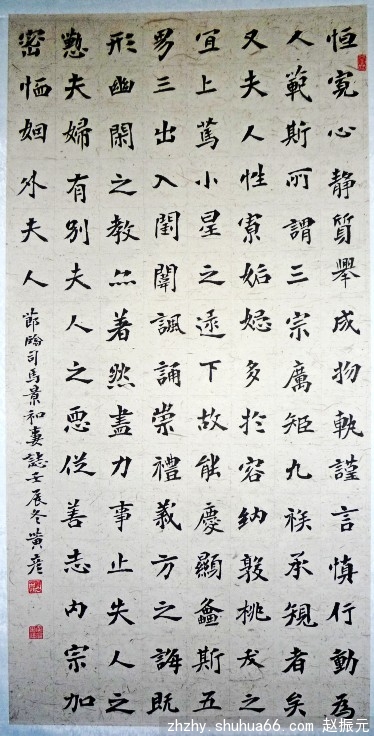 恒寬心静質舉成物軌謹言慎行動為
人範斯所謂三宗厲矩九族承規者矣
又夫人性寡妬多於容納敦桃夭之
宜上篤小星之遜下故能慶顯螽斯五
男三出入閨闈諷誦崇禮義方之誨既
形幽閑之教亦著然盡力事上夫人之
懃夫婦有別夫人之恧從善志内宗加
密恤姻外夫人
節臨司馬景和妻誌壬辰冬黄彦
zhzhy.shuhua66.com 赵振元